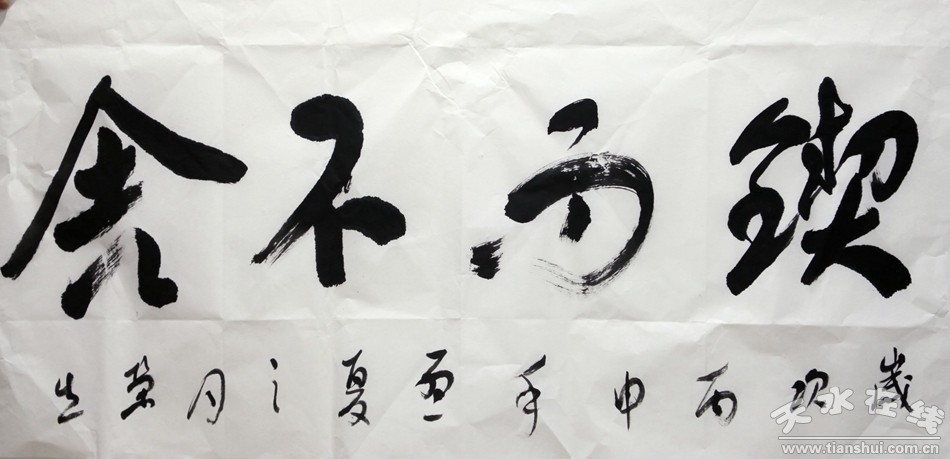 锲而不舍
歲次丙申年孟夏之月荣生
天水在线
www.tianshui.com.cn